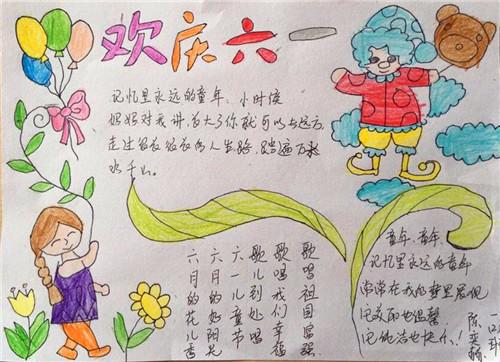 欢庆六一
记忆里永远的童年，小时候
妈妈对我讲，长大了你就可以去远方
走过的人生路，踏遍万
水千山。
六月的花儿香
六月的好阳光
六一儿童节
歌儿到处唱
歌唱我们幸福
歌唱祖国富强
童年，童年，
记忆里永远的童年
常常在我的梦里展现
也温馨
也快乐！
陈